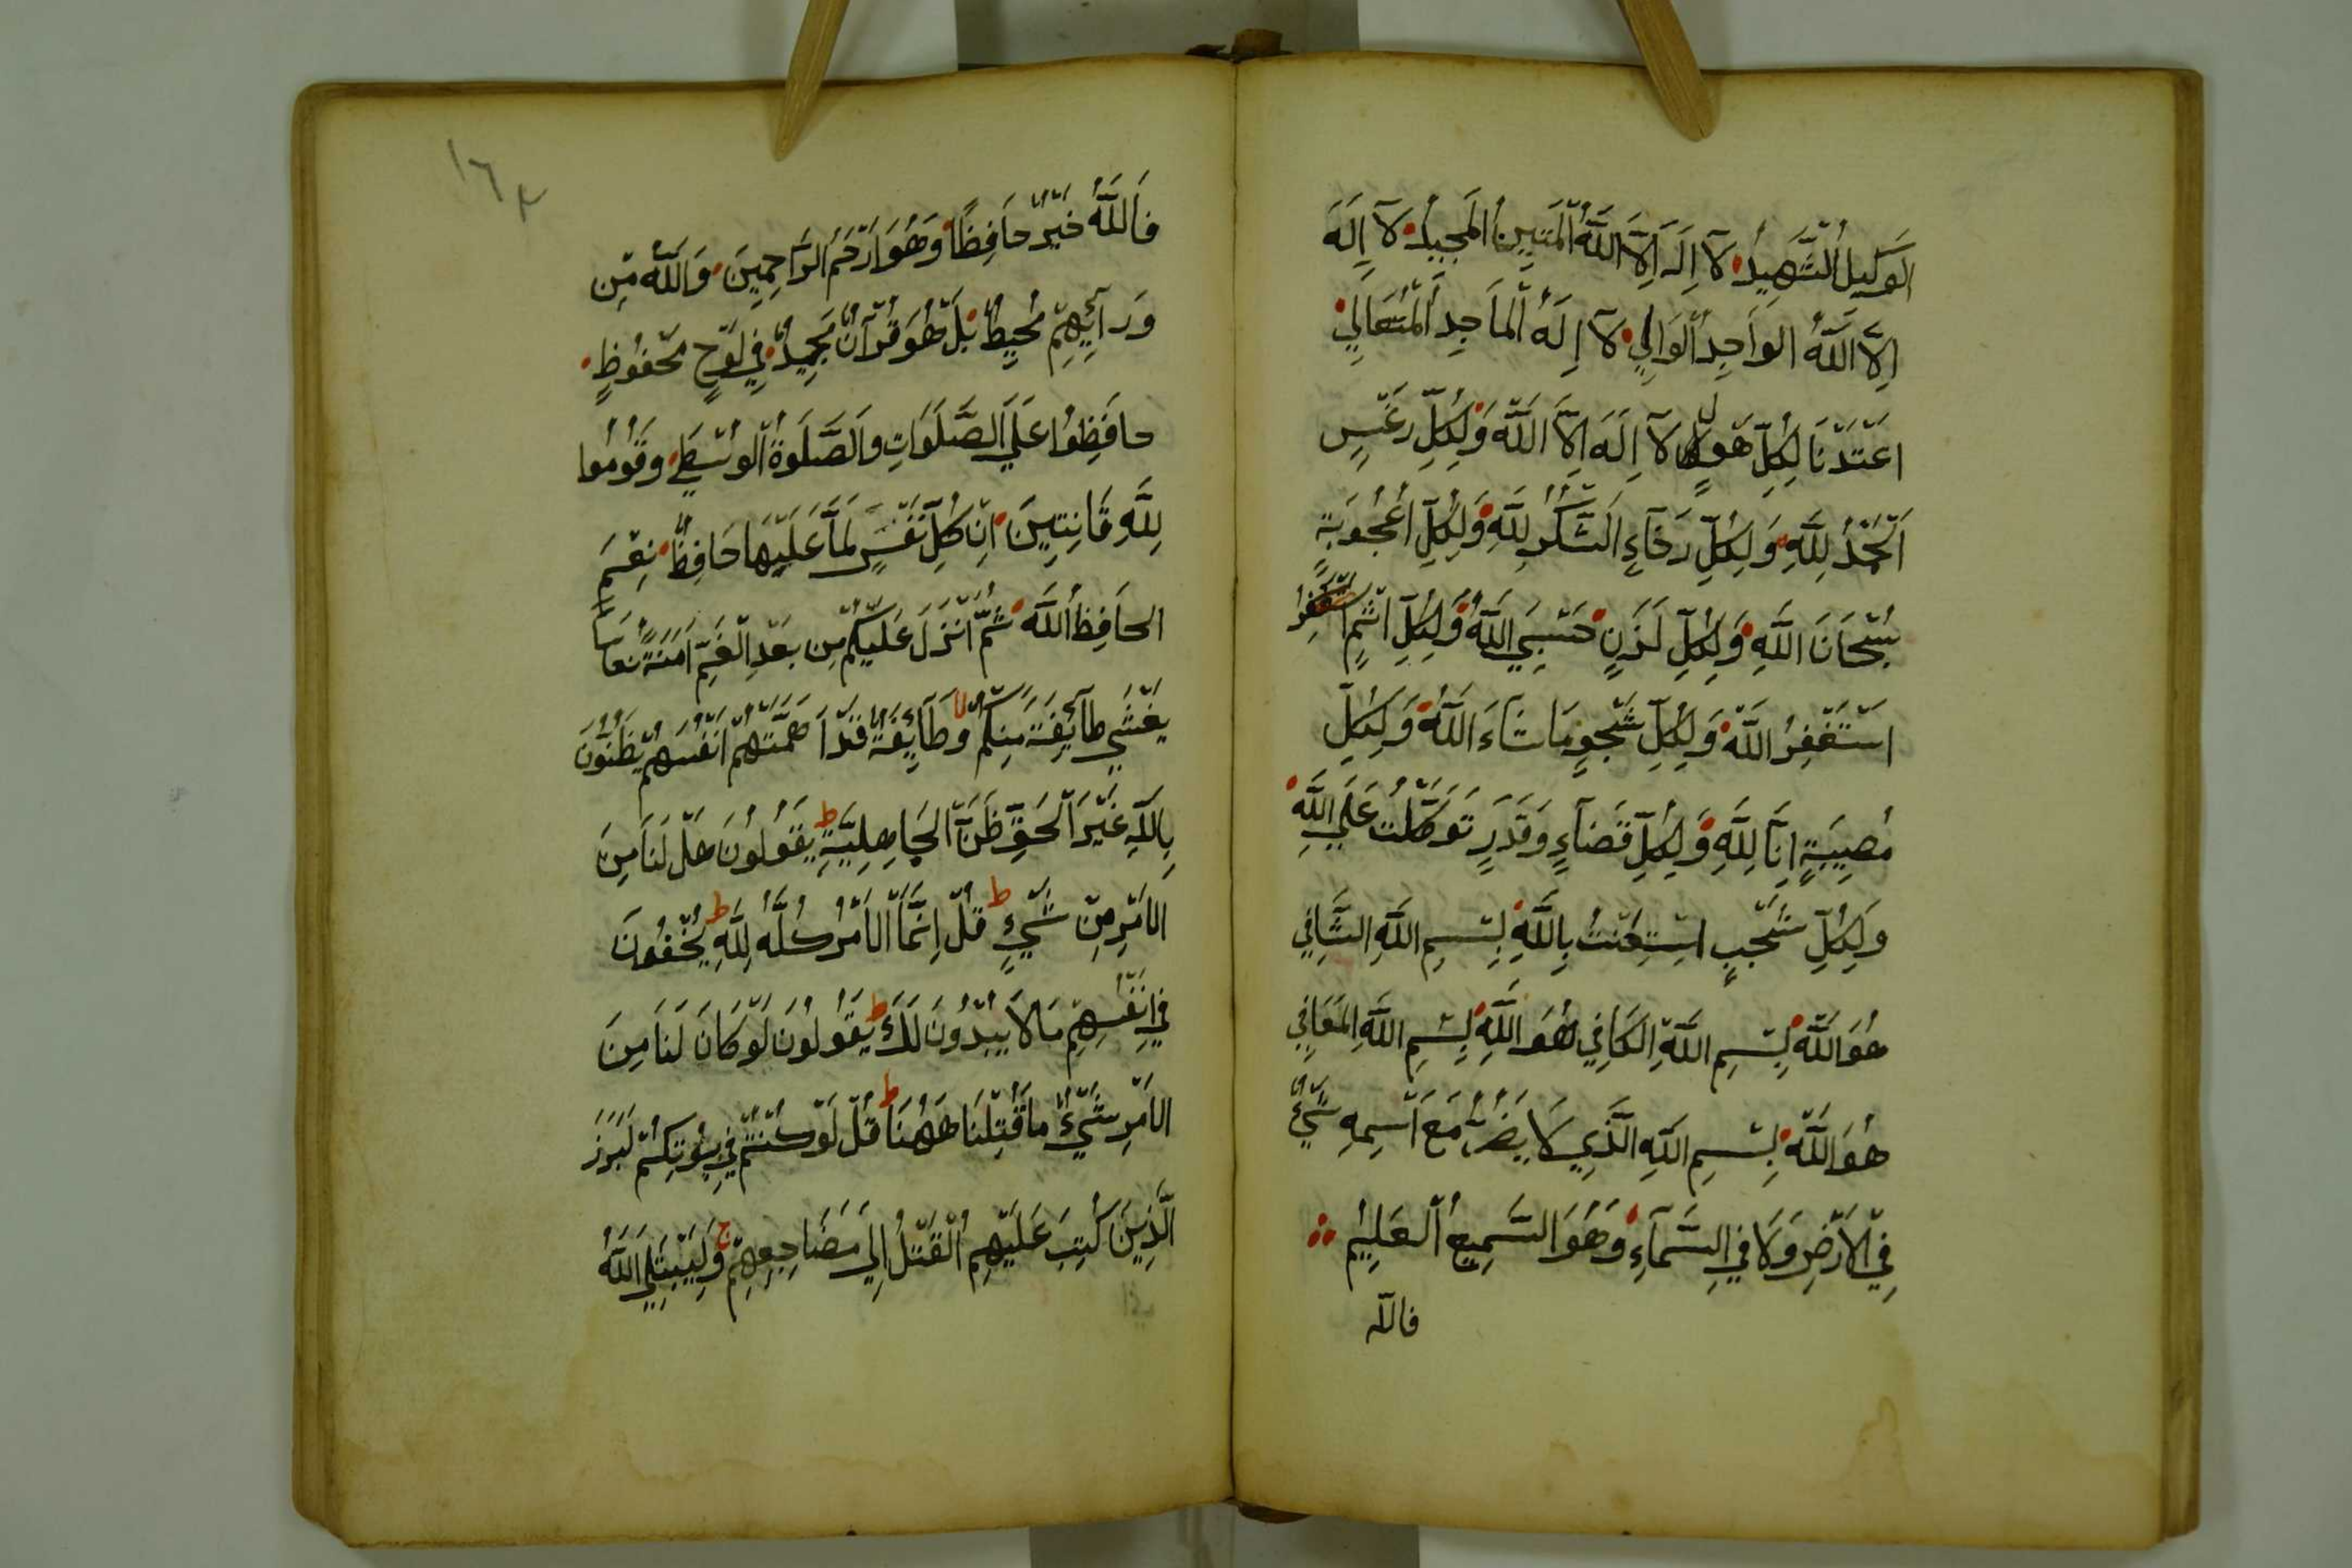 الوَكِيلُ الشَّهِيدُ لَآ اِلَهَ اِلَّا اللَّهُ الْمَتِينُ المَجِيدُ لَآ اِلَهَ
اِلَّا اللَّهُ الوَاجِدُ الْوَالِي لَآ اِلَهَ الْمَاجِدِ الْمُتَعَالِي
اعْتَدْنَا لِكُلِّ هَوْلٍ لَآ اِلَهَ اِلَّا اللَّهُ وَلِكُلِّ رَغْسٍ
اَلْحَمْدُ لِلَّهِ وَلِكُلِّ رَخَآءٍ الشُّكْرُ لِلَّهِ وَلِكُلِّ اُعْجُوبَةٍ
سُبْحَانَ اللَّهِ وَلِكُلِّ لَزَنٍ حَسْبِيَ اللَّهُ وَلِكُلِّ اثْمٍ
اسْتَغْفِرُ اللَّهَ وَلِكُلِّ شَجْوٍ مَا شَاءَ اللَّهُ وَلِكُلِّ
مُصِيبَةٍ اِنَّا لِلَّهِ وَلِكُلِّ قَضَآءٍ وَقَدَرٍ تَوَكَّلْتُ عَلَي اللَّهِ
وَلِكُلِّ شَجْبٍ اسْتِعَنْتُ بِاللَّهِ بِسْمِ اللَّهِ الشَّافِي
هُوَ اللَّهُ بِسْمِ اللَّهِ الكَافِي هُوَ اللَّهُ بِسْمِ اللَّهِ المَعَافِي
هُوَ اللَّهُ بِسْمِ اللَّهِ الَّذِي لَا يَضُرُّ مَعَ اسْمِهِ شَيْءٌ
فِي الاَرْضِ وَلَا فِي السَّمَآءِ وَهُوَ السَّمِيعُ الْعَلِيمُ
فالله
١٦٣
فَاللَّهُ خَيْرٌ حَافِظًا وَهُوَ اَرْحَمُ الرَّاحِمِينَ وَاللَّهُ مِنْ
وَرَآئِهِمْ مُحِيطٌ بَلْ هُوَ قُرْآنٌ مَجِيدٌ فِي لَوْحٍ مَحْفُوظٍ
حافَظِوُا عَلَي الصَّلَوَاتِ وَالصَّلَوةِ الْوُسْطَي وَقُومُوا
لِلَّهِ قَانِتِينَ اِنْ كُلُّ نَفْسٍ لَمَّا عَلَيْهَا حَافِظٌ نِعْمَ
الحَافِظُ اللَّهُ ثُمَّ اَنْزَلَ عَلَيْكُمْ مِن بَعْدِ الْغَمِّ اَمَنَةً نُعَاسًا
يَغْشَي طَآئِفَةً مِنكُمْ وَطَآئِفَةٌ قَدْ اَهَمَّتْهُمْ اَنْفُسُهُمْ يَظُنُّونَ
بِاللَّهِ غَيْرَ الْحَقِّ ظَنَّ الجَاهِلِيَّةِ يَقُولُونَ هَلْ لَنَا مِنَ
الاَمْرِ مِنْ شَيْءٍ قُلْ اِنَّمَا الاَمْرُ كُلَّهُ لِلَّهِ يُخْفُونَ
فِي اَنْفُسِهِمْ مَالَا يُبْدُونَ لَكَ يَقُولُونَ لَوْ كَانَ لَنَا مِنَ
الاَمْرِ شَيْءٌ مَا قُتِلْنَا هَهُنَا قُلْ لَوْ كُنْتُمْ فِي بِيُوتِكُمْ لَبَرَزَ
الَّذِينَ كُتِبَ عَلَيْهِمُ الْقَتْلُ اِلَي مَضَاجِعِهِمْ وَلِيَبْتَلِيَ اللَّهُ